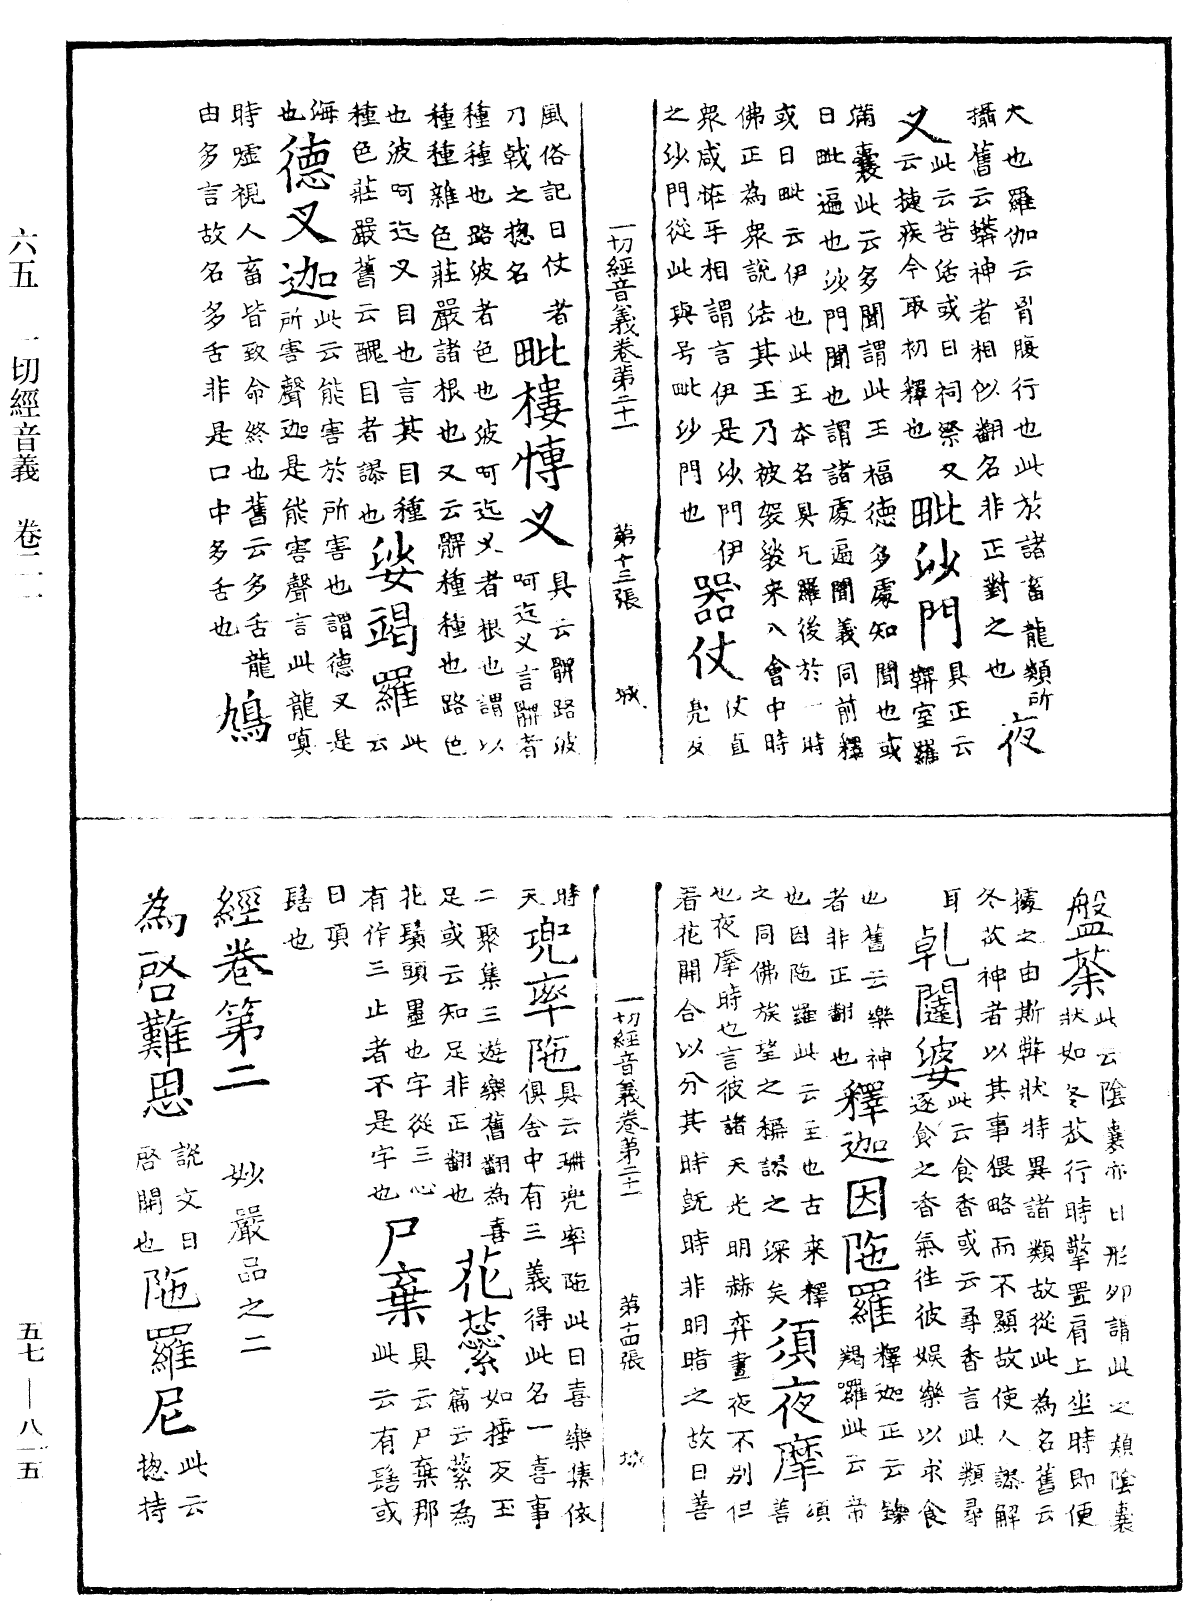 六五 一切經音義 卷二一
大也羅伽云胷腹行也此於諸畜龍類所
攝舊云蟒神者相似翻名非正對之也夜
叉此云苦活或曰祠祭又
云捷疾今取初釋也毗沙門具正云
鞞室羅
懣囊此云多聞謂此王福德多處知聞也或
曰毗遍也沙門聞也謂諸處遍聞義同前釋
或曰毗云伊也此王本名具乞羅後於一時
佛正為衆說法其王乃被袈裟來入會中時
衆咸恠乎相謂言伊是沙門伊
之沙門從此與号毗沙門也器仗仗直
亮反
一切經音義卷第二十一 第十三張 城
風俗記曰仗者
刀戟之揔名毗樓愽叉具云髀路波
呵迄叉言髀者
種種也路波者色也波呵迄叉者根也謂以
種種雜色莊嚴諸根也又云髀種種也路色
也波呵迄叉目也言其目種
種色莊嚴舊云醜目者謬也娑竭羅此
云
海
也德叉迦此云能害於所害也謂德叉是
所害聲迦是能害聲言此龍嗔
時噓視人畜皆致命終也舊云多舌龍
由多言故名多舌非是口中多舌也鳩
盤荼此云陰囊亦曰形卵謂此之類陰囊
狀如冬苽行時擎置肩上坐時即便
據之由斯弊狀特異諸類故從此為名舊云
冬苽神者以其事猥略而不顯故使人謬解
耳乹闥婆此云食香或云尋香言此類尋
逐食之香氣往彼娛樂以求食
也舊云樂神
者非正翻也釋迦因陁羅釋迦正云鑠
羯羅此云帝
也因陁羅此云主也古來釋
之同佛族望之稱謬之深矣須夜摩須
善
也夜摩時也言彼諸天光明赫弈晝夜不別但
看花開合以分其時旣時非明暗之故曰善
一切經音義卷第二十一 第十四張 城
時
天兜率陁具云珊兜率陁此曰喜樂集依
俱舍中有三義得此名一喜事
二聚集三遊樂舊翻為喜
足或云知足非正翻也花蘂如捶反玉
篇云蘂為
花鬚頭㽵也字從三心
有作三止者不是字也尸棄具云尸棄那
此云有髻或
曰頂
髻也
經卷第二 妙嚴品之二
為啓難思說文曰
啓開也陁羅尼此云
揔持
五七—八一五